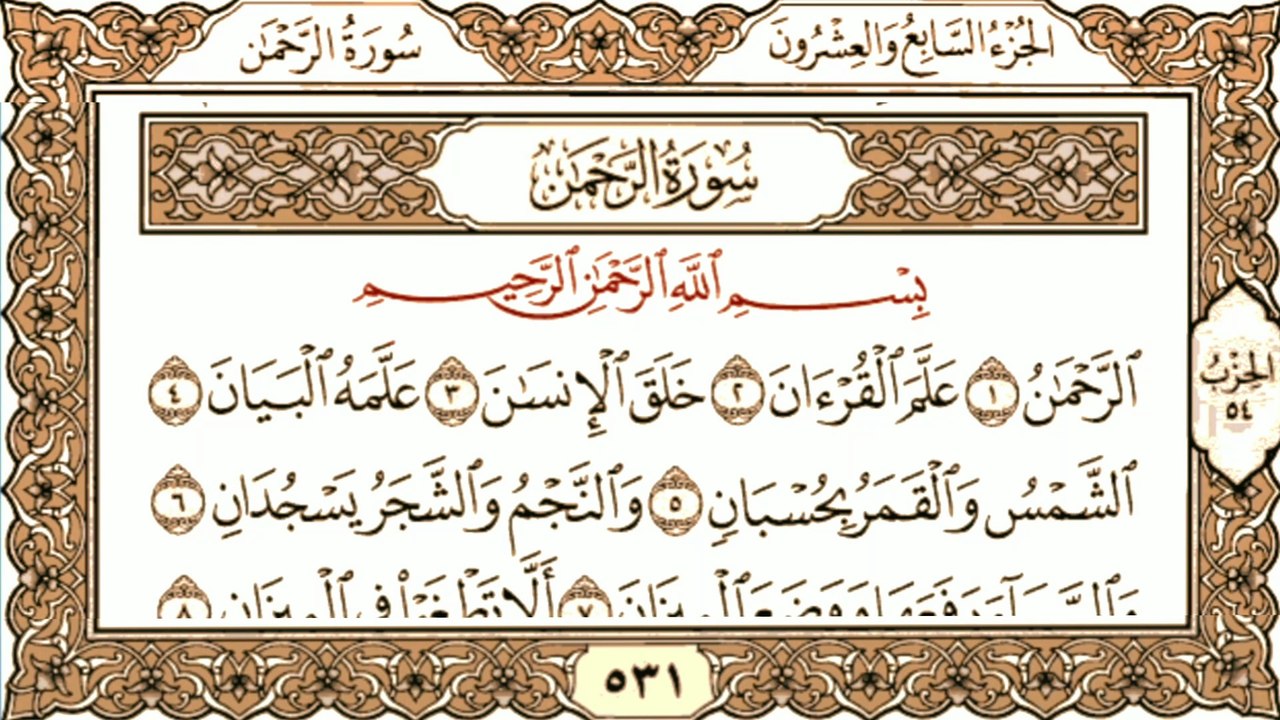 سُورَةُ الرَّحْمَٰن
الجُزْءُ السَّابِعُ وَالْعِشْرُونَ
سُورَةُ الرَّحْمَٰن
بِسْمِ ٱللَّهِ ٱلرَّحْمَٰنِ ٱلرَّحِيمِ
ٱلرَّحْمَٰنُ ١ عَلَّمَ ٱلْقُرْءَانَ ٢ خَلَقَ ٱلْإِنسَٰنَ ٣ عَلَّمَهُ ٱلْبَيَانَ ٤
ٱلشَّمْسُ وَٱلْقَمَرُ بِحُسْبَانٍ ٥ وَٱلنَّجْمُ وَٱلشَّجَرُ يَسْجُدَانِ ٦
وَٱلسَّمَآءَ رَفَعَهَا وَوَضَعَ ٱلْمِيزَانَ ٧ أَلَّا تَطْغَوْا۟ فِى ٱلْمِيزَانِ ٨
الحِزْبُ
٥٤
٥٣١